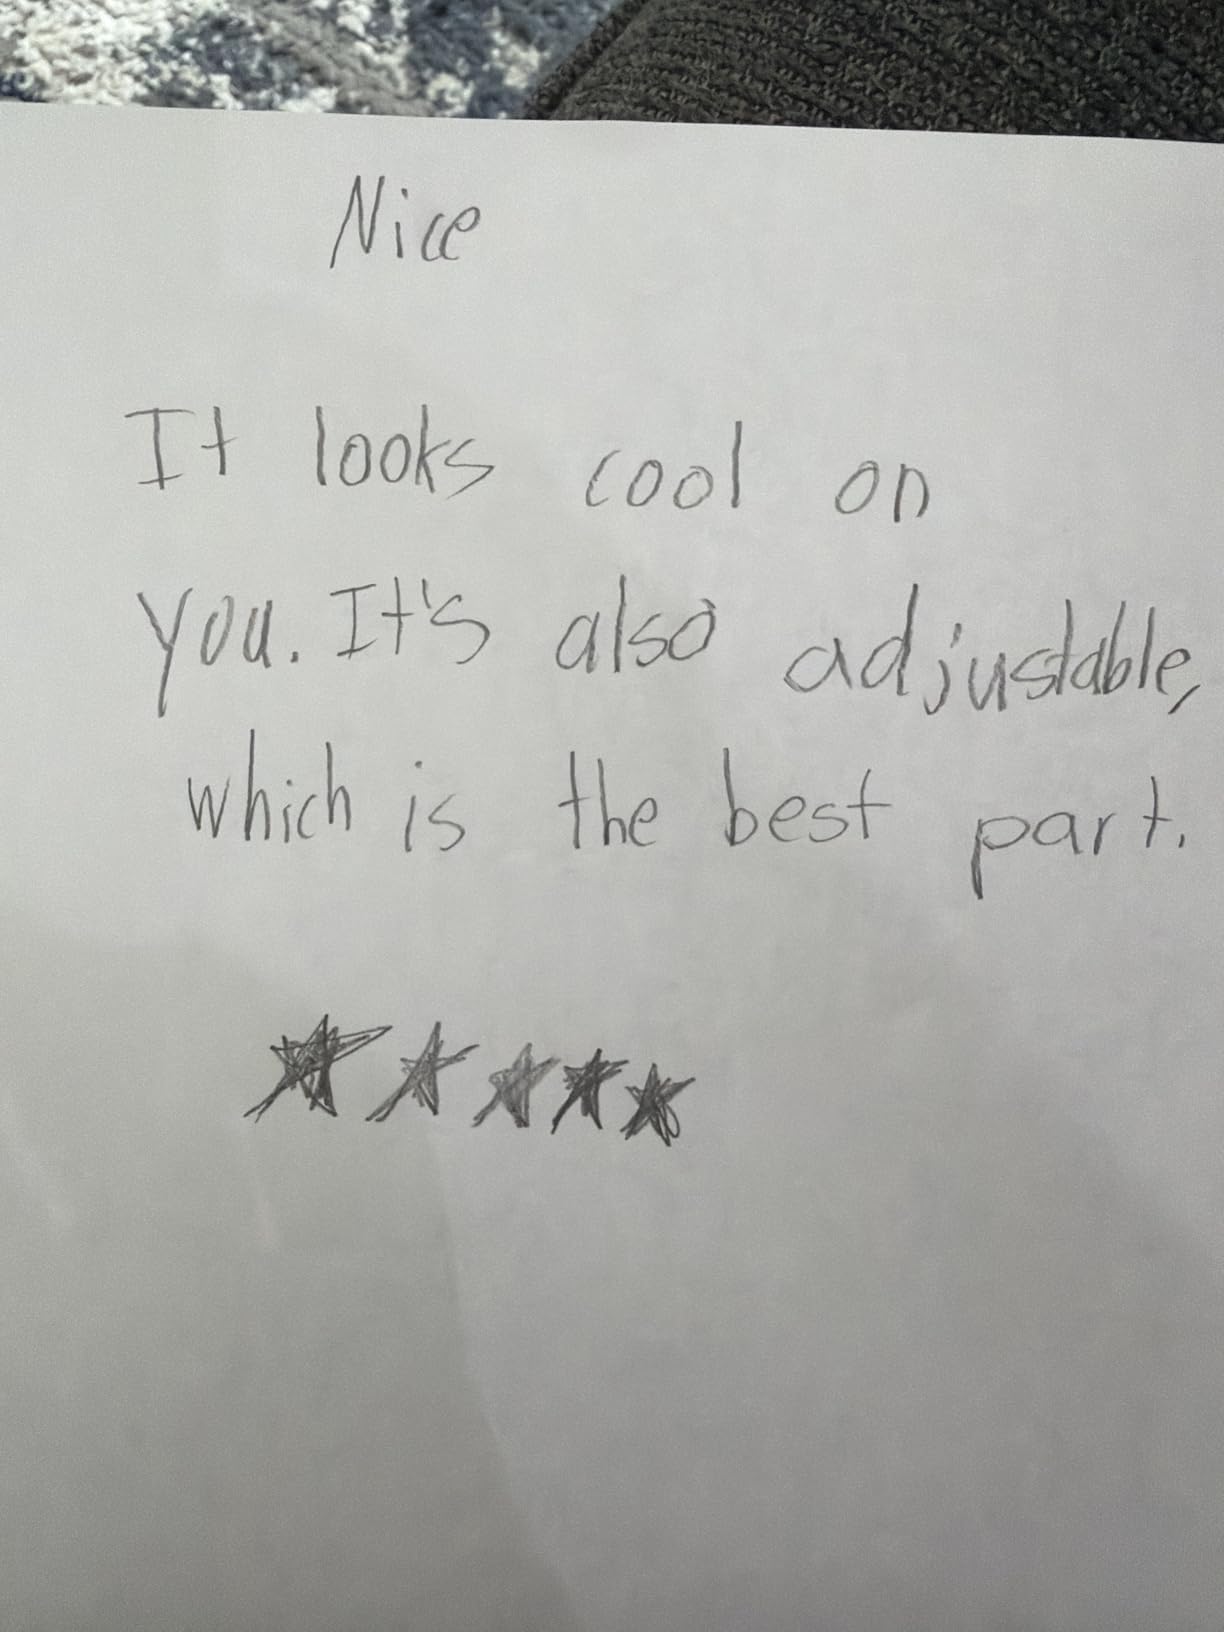 Nice
It looks cool on
you. It's also adjustable,
which is the best part.